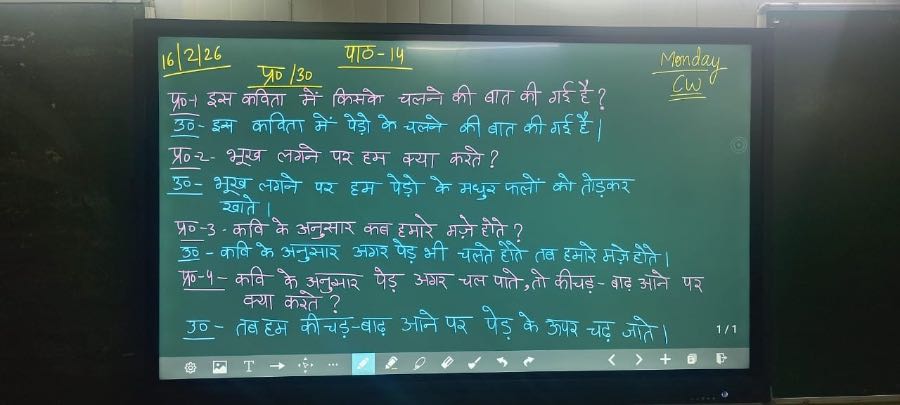 16/2/26 पाठ-14 Monday
प्र0/उ0 CW
प्र0-1 इस कविता में किसके चलने की बात की गई है?
उ0- इस कविता में पेड़ो के चलने की बात की गई है।
प्र0-2- भूख लगने पर हम क्या करते?
उ0- भूख लगने पर हम पेड़ो के मधुर फलों को तोड़कर
खाते।
प्र0-3- कवि के अनुसार कब हमारे मज़े होते?
उ0- कवि के अनुसार अगर पेड़ भी चलते होते तब हमारे मज़े होते।
प्र0-4- कवि के अनुसार पेड़ अगर चल पाते, तो कीचड़-बाढ़ आने पर
क्या करते?
उ0- तब हम कीचड़-बाढ़ आने पर पेड़ के ऊपर चढ़ जाते।
1/1